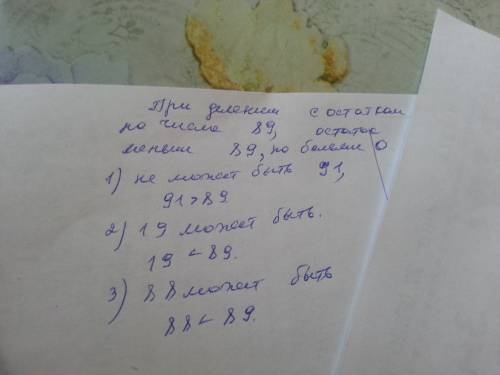 При делении с остатком
на число 89, остаток
меньши 89, но болеее 0.
1) не может быть 91,
91>89.
2) 19 может быть.
19<89.
3) 88 может быть
88<89.